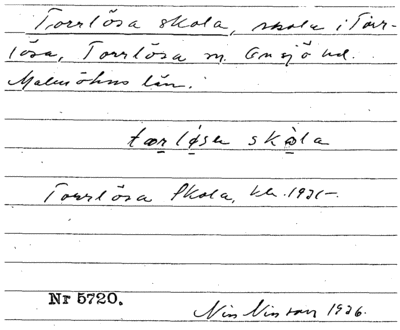 Torrlösa skola, skola i Torr-
lösa, Torrlösa sn. Onsjö hd.
Malmöhus län.
tørløsa skola
Torrlösa Skola,
Nr 5720.
Nils Nilsson 1926.